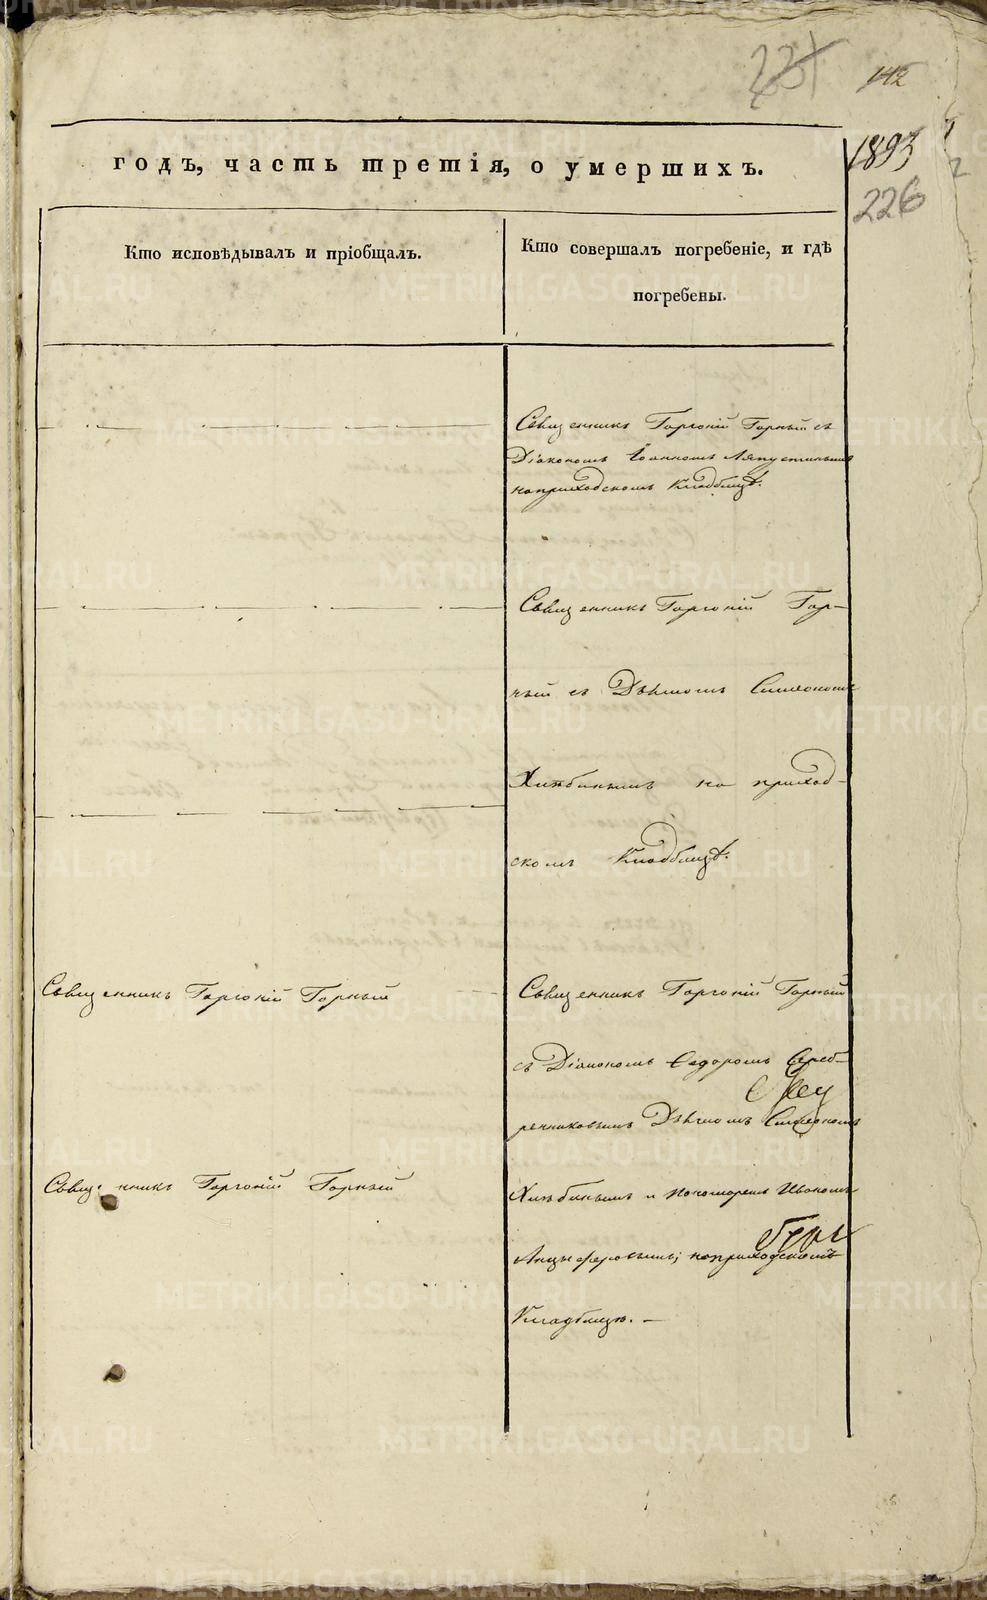 231
142
годъ, часть третія, о умершихъ.
1893
226
Кто исповѣдывалъ и пріобщалъ.
Кто совершалъ погребеніе, и гдѣ
погребены.
Священникъ Горгоній Горный съ
Діакономъ Іоанномъ Ляпустинымъ
на приходскомъ Кладбищѣ.
Священникъ Горгоній Гор-
ный съ Дьячкомъ Симеономъ
Хлѣбинымъ на приход-
скомъ Кладбищѣ.
Священникъ Горгоній Горный
Священникъ Горгоній Горный
съ Діакономъ Ѳедоромъ Сереб-
ренниковымъ Дьячкомъ Симеономъ
Священникъ Горгоній Горный
Хлѣбинымъ и пономаремъ Иваномъ
Анцыферовымъ; на приходскомъ
Кладбищѣ.
METRIKI.GASO-URAL.RU